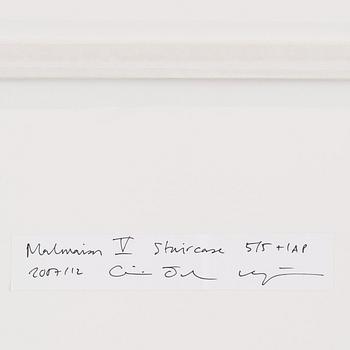 Malmaison V Staircase 5/5 + 1AP
2007/12